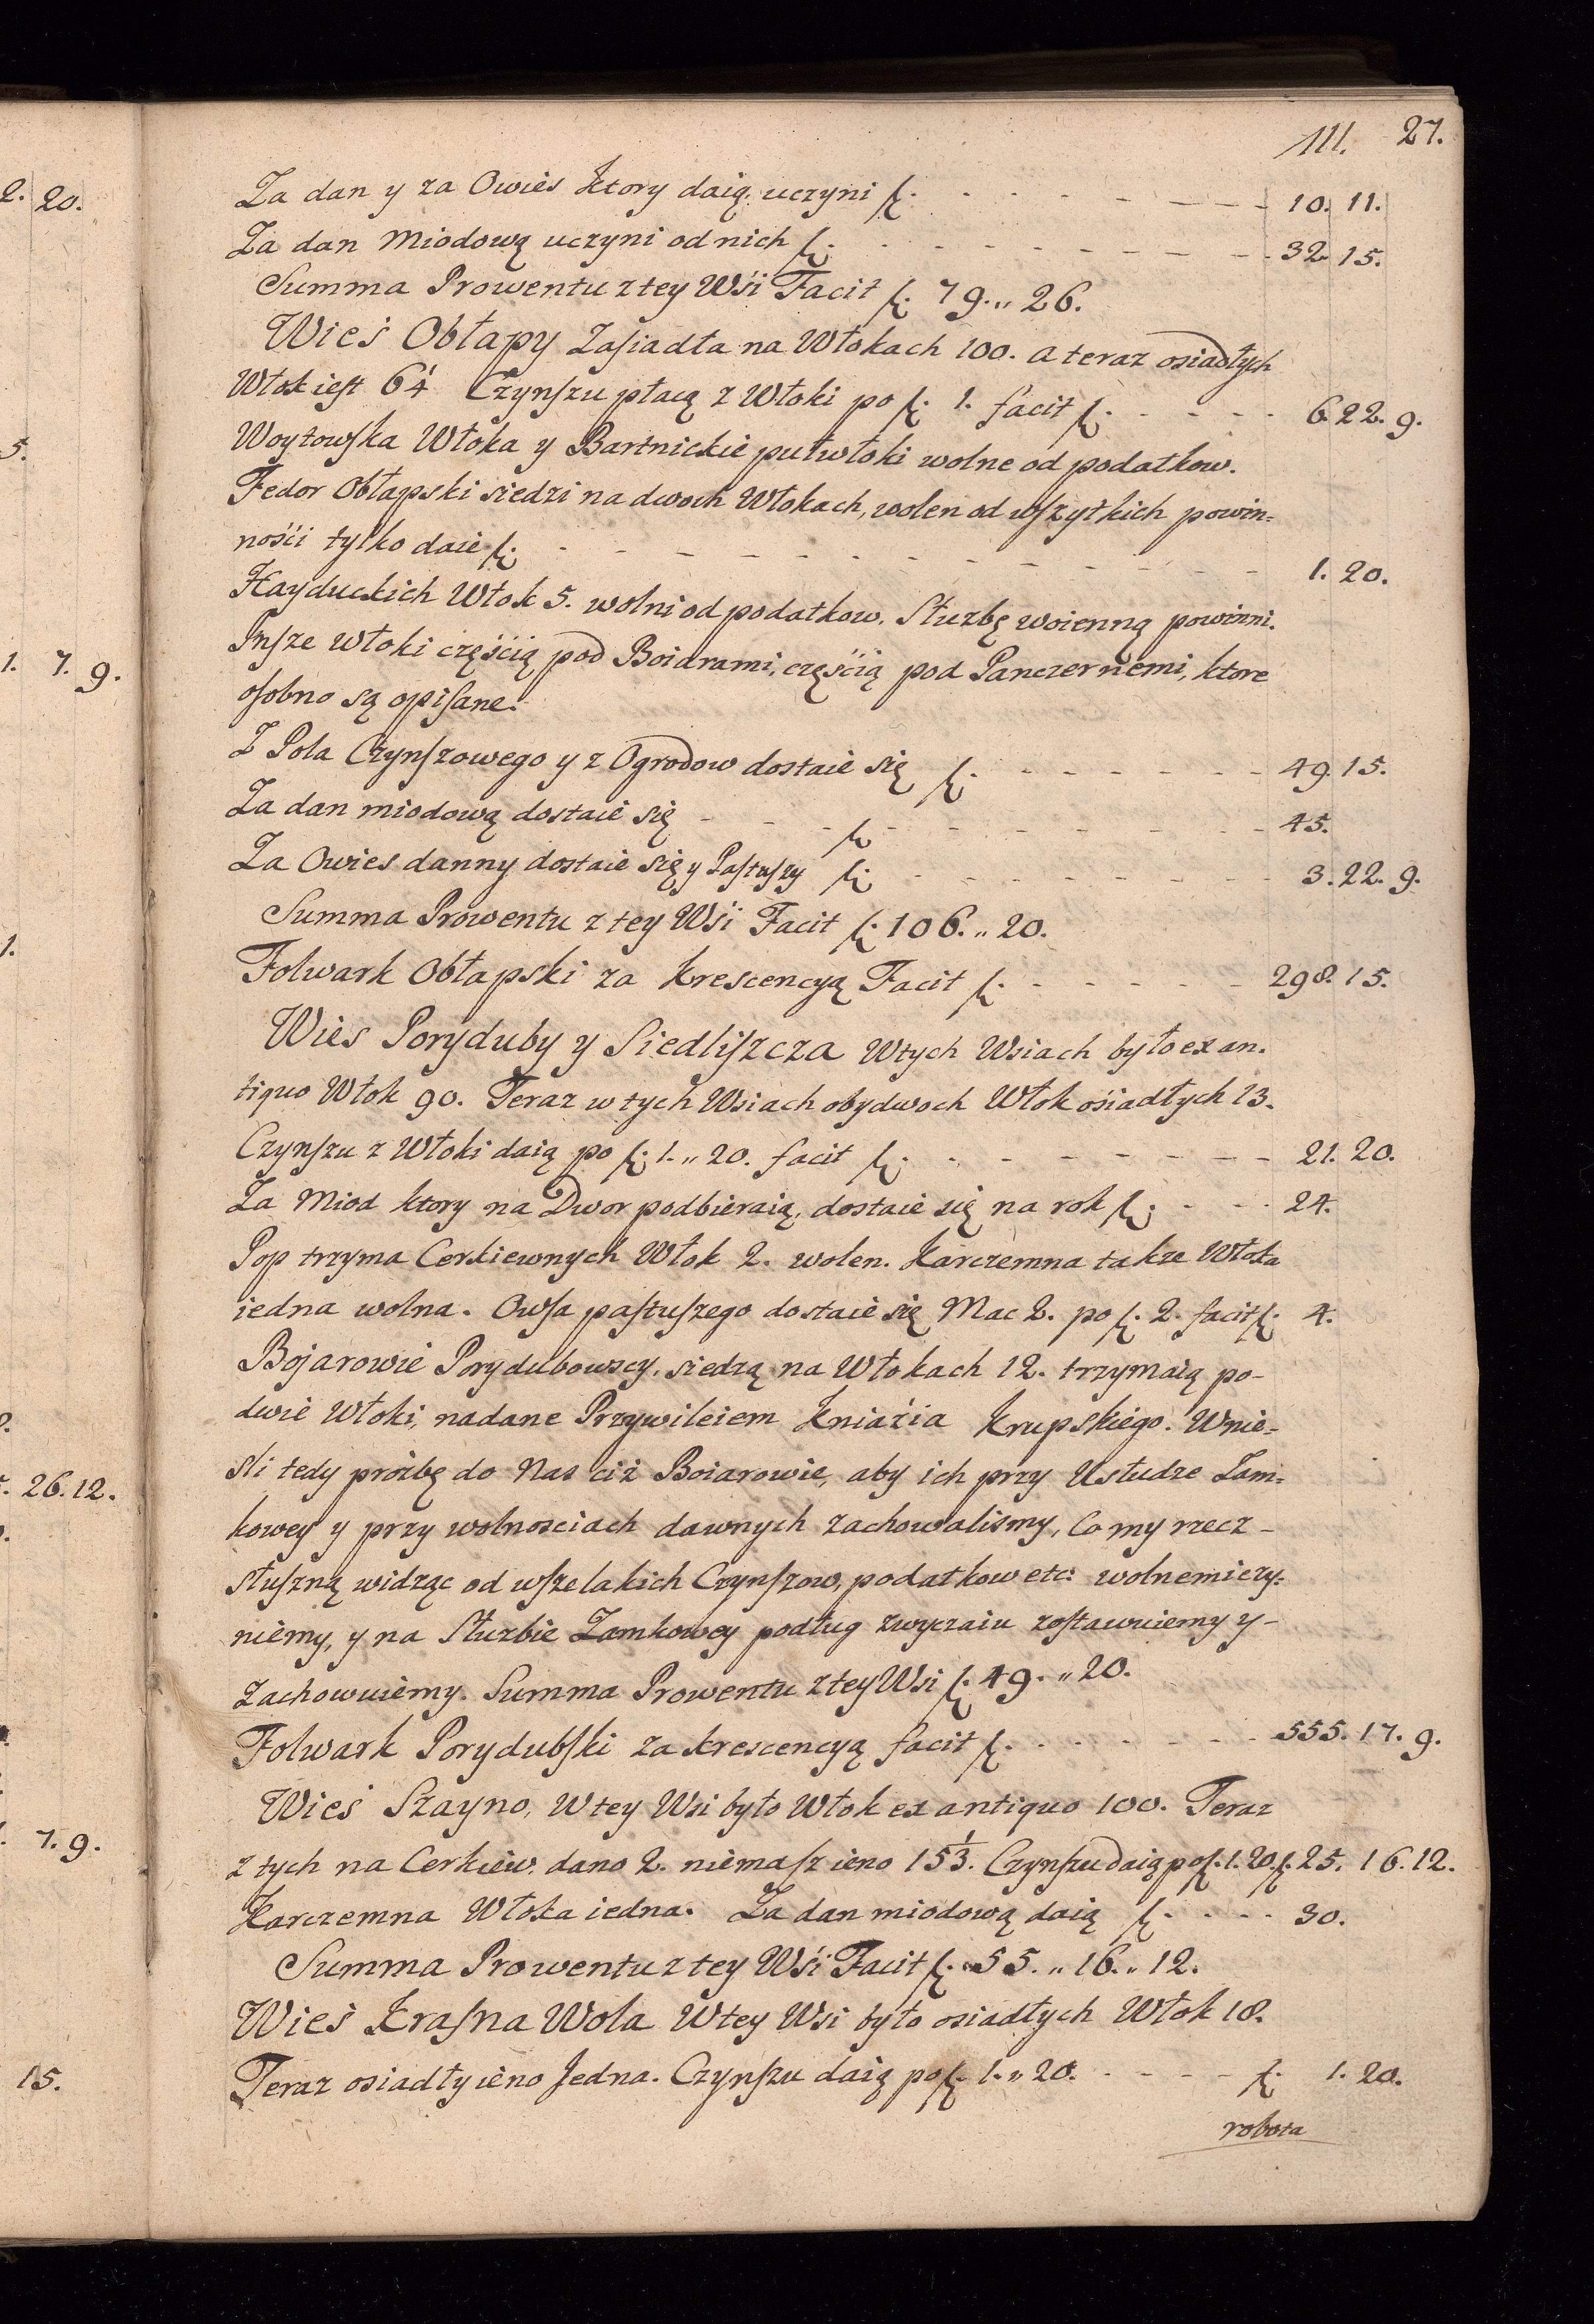 111. 27.
Za dan y za Owies ktory daią, uczyni f. 10. 11.
Za dan Miodową uczyni od nich f. 32. 15.
Summa Prowentu z tey Wśi Facit f. 79. „ 26.
Wieś Obłapy Zaſiadła na Włokach 100. a teraz osiadłych
Włok ieſt 6¼ Czynſzu płacą z Włoki po f. 1. facit f. 6. 22. 9.
Woytowſka Włoka y Bartnickie pułwłoki wolne od podatkow.
Fedor Obłapski siedzi na dwoch Włokach, wolen od wſzytkich powin=
nośći tylko daie f. 1. 20.
Hayduckich Włok 5. wolni od podatkow. Służbę woienną powinni.
Inſze Włoki częśćią pod Boiarami, częśćią pod Panczernemi, ktore
oſobno są opiſane.
Z Pola Czynſzowego y z Ogrodow dostaie się f. 49. 15.
Za dan miodową dostaie się f. 45.
Za Owies danny dostaie się y Paſtuſzy f. 3. 22. 9.
Summa Prowentu z tey Wśi Facit f. 106. „ 20.
Folwark Obłapski za krescencyą Facit f. 298. 15.
Wieś Poryduby y Siedliſzcza W tych Wsiach było ex an-
tiquo Włok 90. Teraz w tych Wsiach obydwoch Włok ośiadłych 13.
Czynſzu z Włoki daią po f. 1. „ 20. facit f. 21. 20.
Za Miod ktory na Dwor podbieraią, dostaie się na rok f. 24.
Pop trzyma Cerkiewnych Włok 2. wolen. Karczemna także Włoka
iedna wolna. Owſa paſtuſzego dostaie się Mac 2. po f. 2. facit f. 4.
Bojarowie Porydubowscy, siedzą na Włokach 12. trzymaią po-
dwie Włoki, nadane Przywileiem Kniaźia Krupskiego. Wnie=
śli tedy proźbę do Nas ciż Boiarowie, aby ich przy Usłudze Zam=
kowey y przy wolnosciach dawnych zachowaliśmy, Co my rzecz-
słuſzną widząc od wſzelakich Czynſzow, podatkow etc: wolnemi czy=
niemy, y na Służbie Zamkowey podług zwyczaiu zoſtawuiemy y-
zachowuiemy. Summa Prowentu z tey Wsi f. 49. „ 20.
Folwark Porydubſki za krescencyą facit f. 555. 17. 9.
Wieś Szayno, W tey Wsi było Włok ex antiquo 100. Teraz
z tych na Cerkiew dano 2. niemaſz ieno 15⅓. Czynſzu daią po f. 1. 20. f. 25. 16. 12.
Karczemna Włoka iedna. Za dan miodową daią f. 30.
Summa Prowentu z tey Wśi Facit f. 55. „ 16. „ 12.
Wieś Kraſna Wola W tey Wsi było osiadłych Włok 18.
Teraz osiadły ieno Jedna. Czynſzu daią po f. 1. „ 20. f. 1. 20.
robota
2. 20.
5.
1. 7. 9.
1.
26. 12.
7. 9.
15.